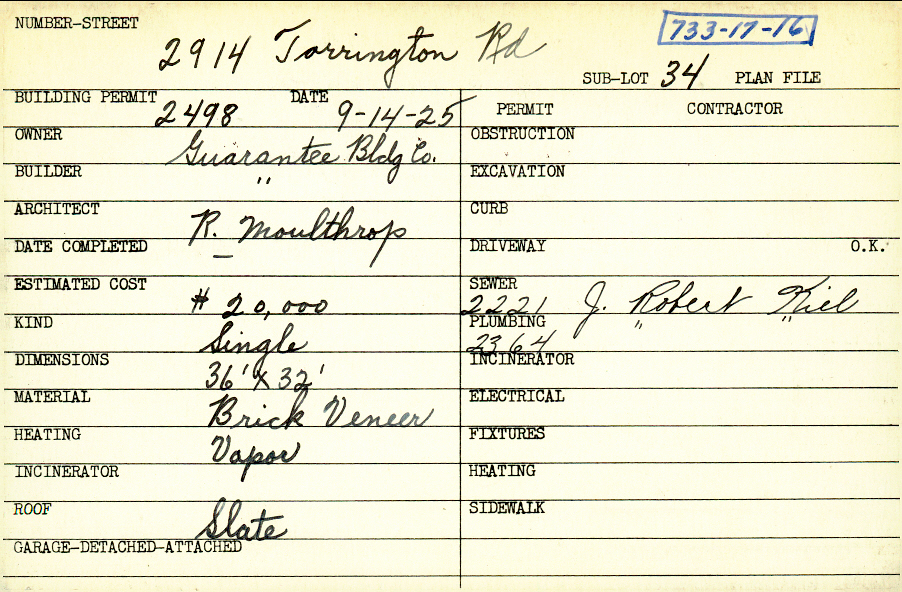 NUMBER-STREET 2914 Torrington Rd 733-17-16
SUB-LOT 34 PLAN FILE
BUILDING PERMIT 2498 DATE 9-14-25
OWNER Guarantee Bldg Co.
BUILDER "
ARCHITECT R. Moulthrop
DATE COMPLETED —
ESTIMATED COST # 20,000
KIND Single
DIMENSIONS 36' x 32'
MATERIAL Brick Veneer
HEATING Vapor
INCINERATOR
ROOF Slate
GARAGE-DETACHED-ATTACHED
PERMIT CONTRACTOR
OBSTRUCTION
EXCAVATION
CURB
DRIVEWAY O.K.
SEWER 2221 J. Robert Kiel
PLUMBING 2364 " "
INCINERATOR
ELECTRICAL
FIXTURES
HEATING
SIDEWALK